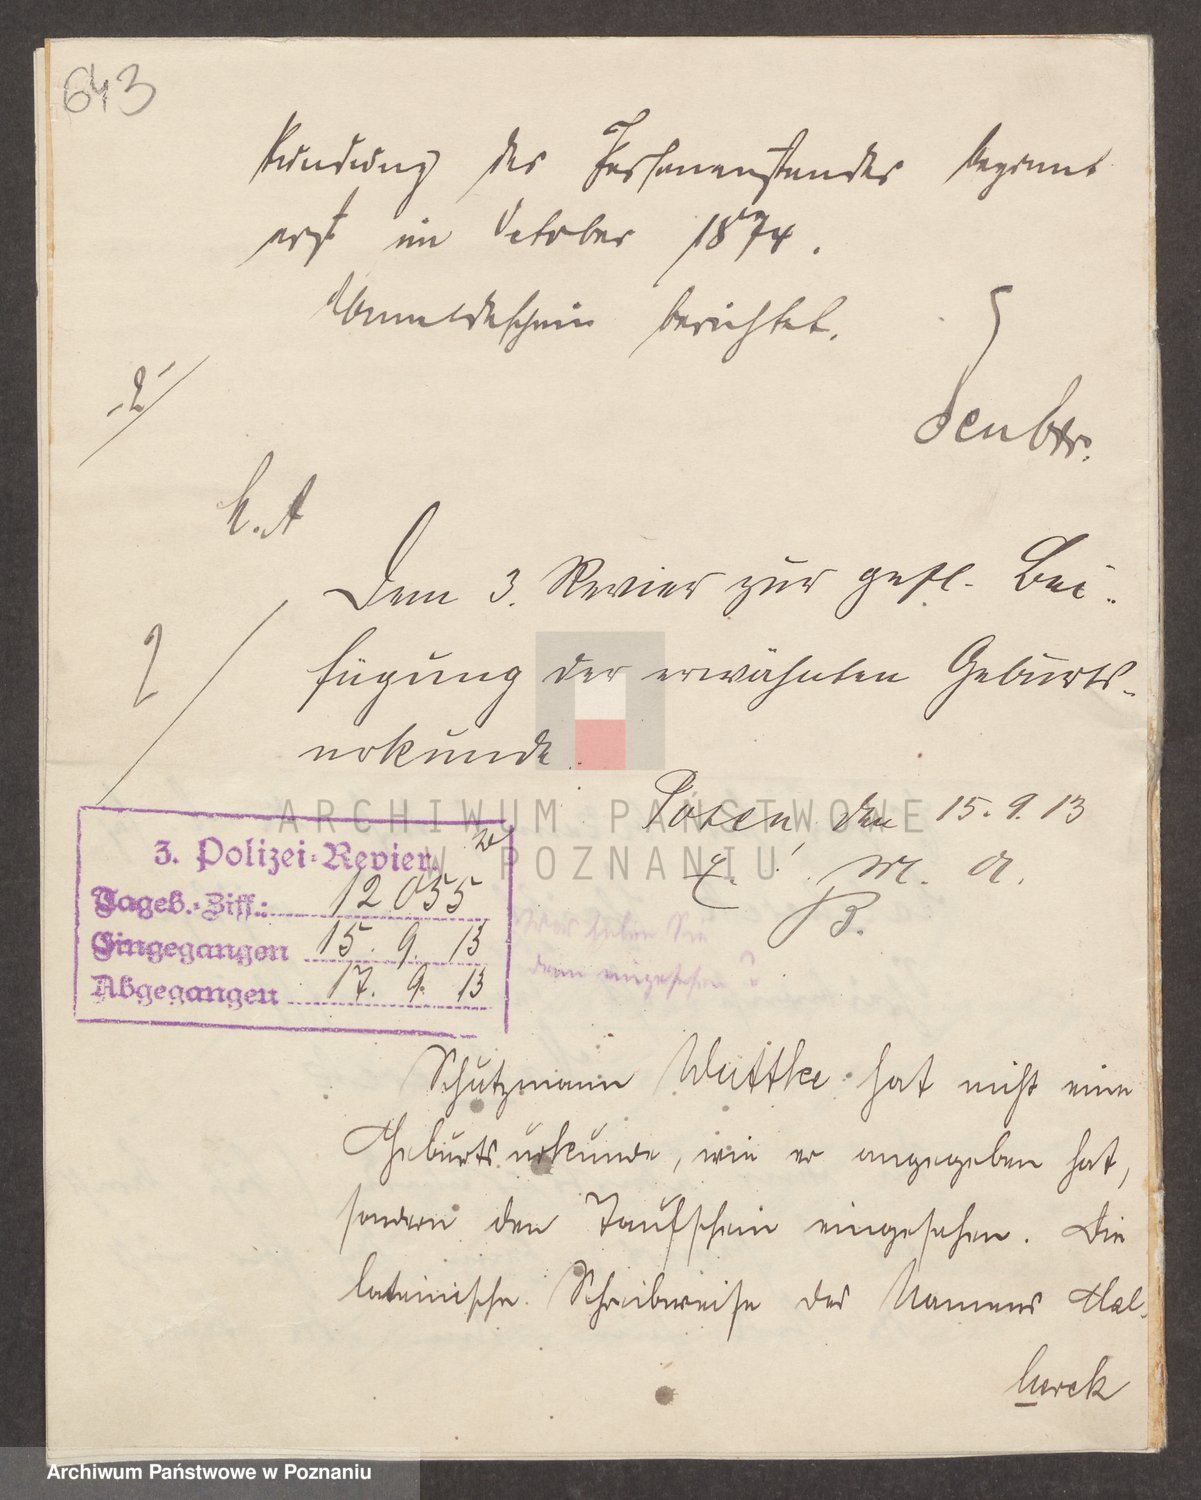 643
kundung des Personenstandes beginnt
erst im October 1874.
Anmeldeschein berichtet.
h. A
Dem 3. Revier zur gefl. Bei-
fügung der erwähnten Geburts-
urkunde.
Posen, den 15. 9. 13
E. M. A.
B.
3. Polizei-Revier.
Tageb.-Ziff.: 12055
Eingegangen 15. 9. 13
Abgegangen 17. 9. 13
Was haben Sie
denn eingesehen?
Schutzmann Wuttke hat nicht eine
Geburtsurkunde, wie er angegeben hat,
sondern den Taufschein eingesehen. Die
lateinische Schreibweise des Namens
ARCHIWUM PAŃSTWOWE
W POZNANIU
Archiwum Państwowe w Poznaniu